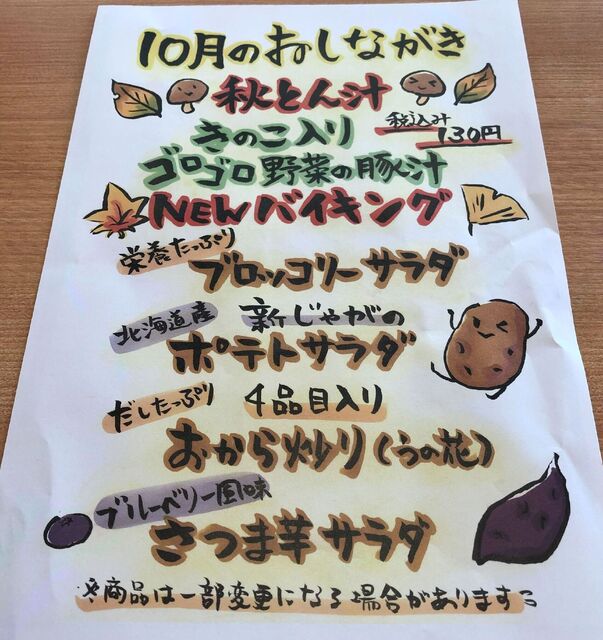 10月のおしながき
秋とん汁
きのこ入り 税込み 130円
ゴロゴロ野菜の豚汁
NEWバイキング
栄養たっぷり
ブロッコリーサラダ
北海道産 新じゃがの
ポテトサラダ
だしたっぷり 4品目入り
おから炒り(うの花)
ブルーベリー風味
さつま芋サラダ
※商品は一部変更になる場合があります。